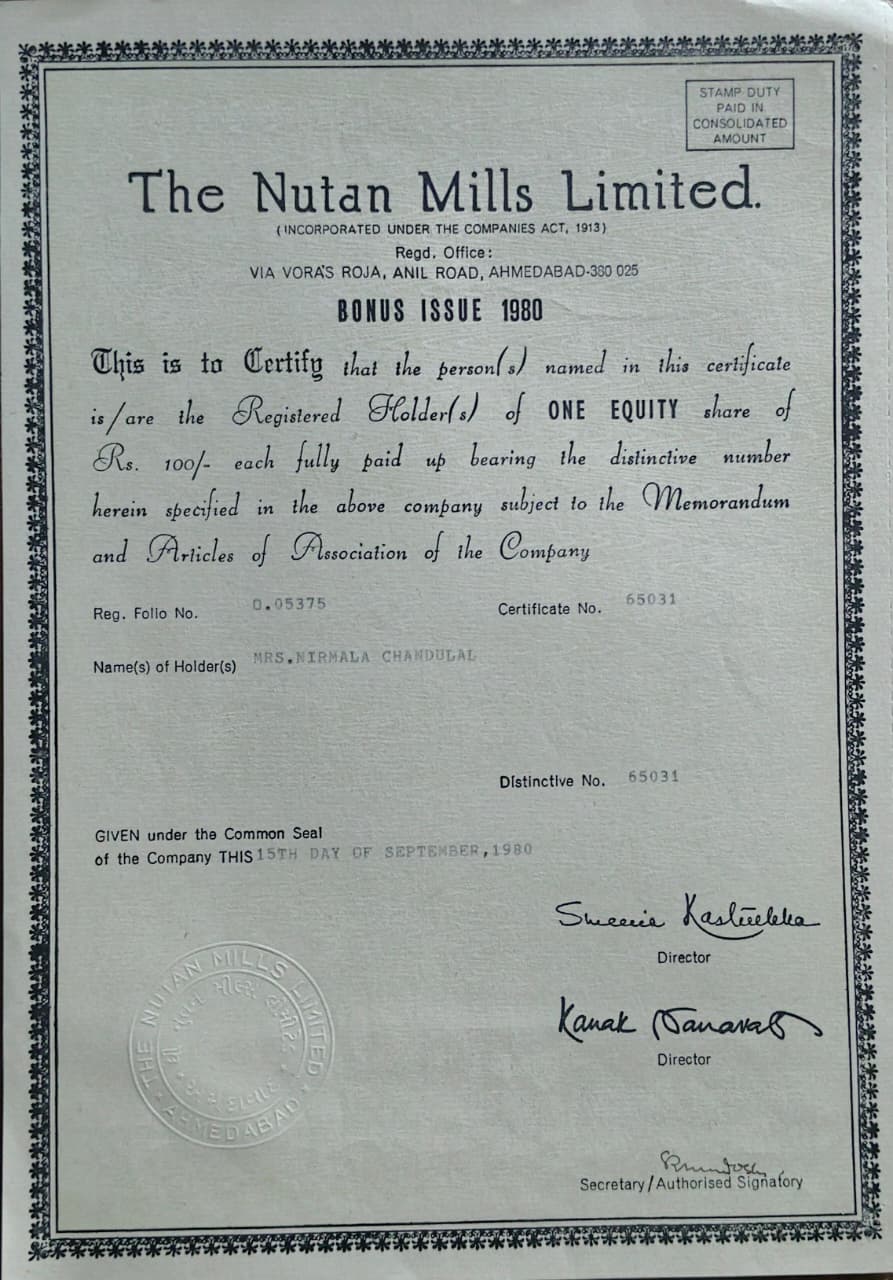 STAMP DUTY
PAID IN
CONSOLIDATED
AMOUNT
The Nutan Mills Limited.
(INCORPORATED UNDER THE COMPANIES ACT, 1913)
Regd. Office:
VIA VORA'S ROJA, ANIL ROAD, AHMEDABAD-380 025
BONUS ISSUE 1980
This is to Certify that the person(s) named in this certificate
is/are the Registered Holder(s) of ONE EQUITY share of
Rs. 100/- each fully paid up bearing the distinctive number
herein specified in the above company subject to the Memorandum
and Articles of Association of the Company
Reg. Folio No. 0.05375 Certificate No. 65031
Name(s) of Holder(s) MRS.NIRMALA CHANDULAL
Distinctive No. 65031
GIVEN under the Common Seal
of the Company THIS 15TH DAY OF SEPTEMBER,1980
Director
Kanak
Director
Secretary/Authorised Signatory
THE NUTAN MILLS LIMITED
AHMEDABAD